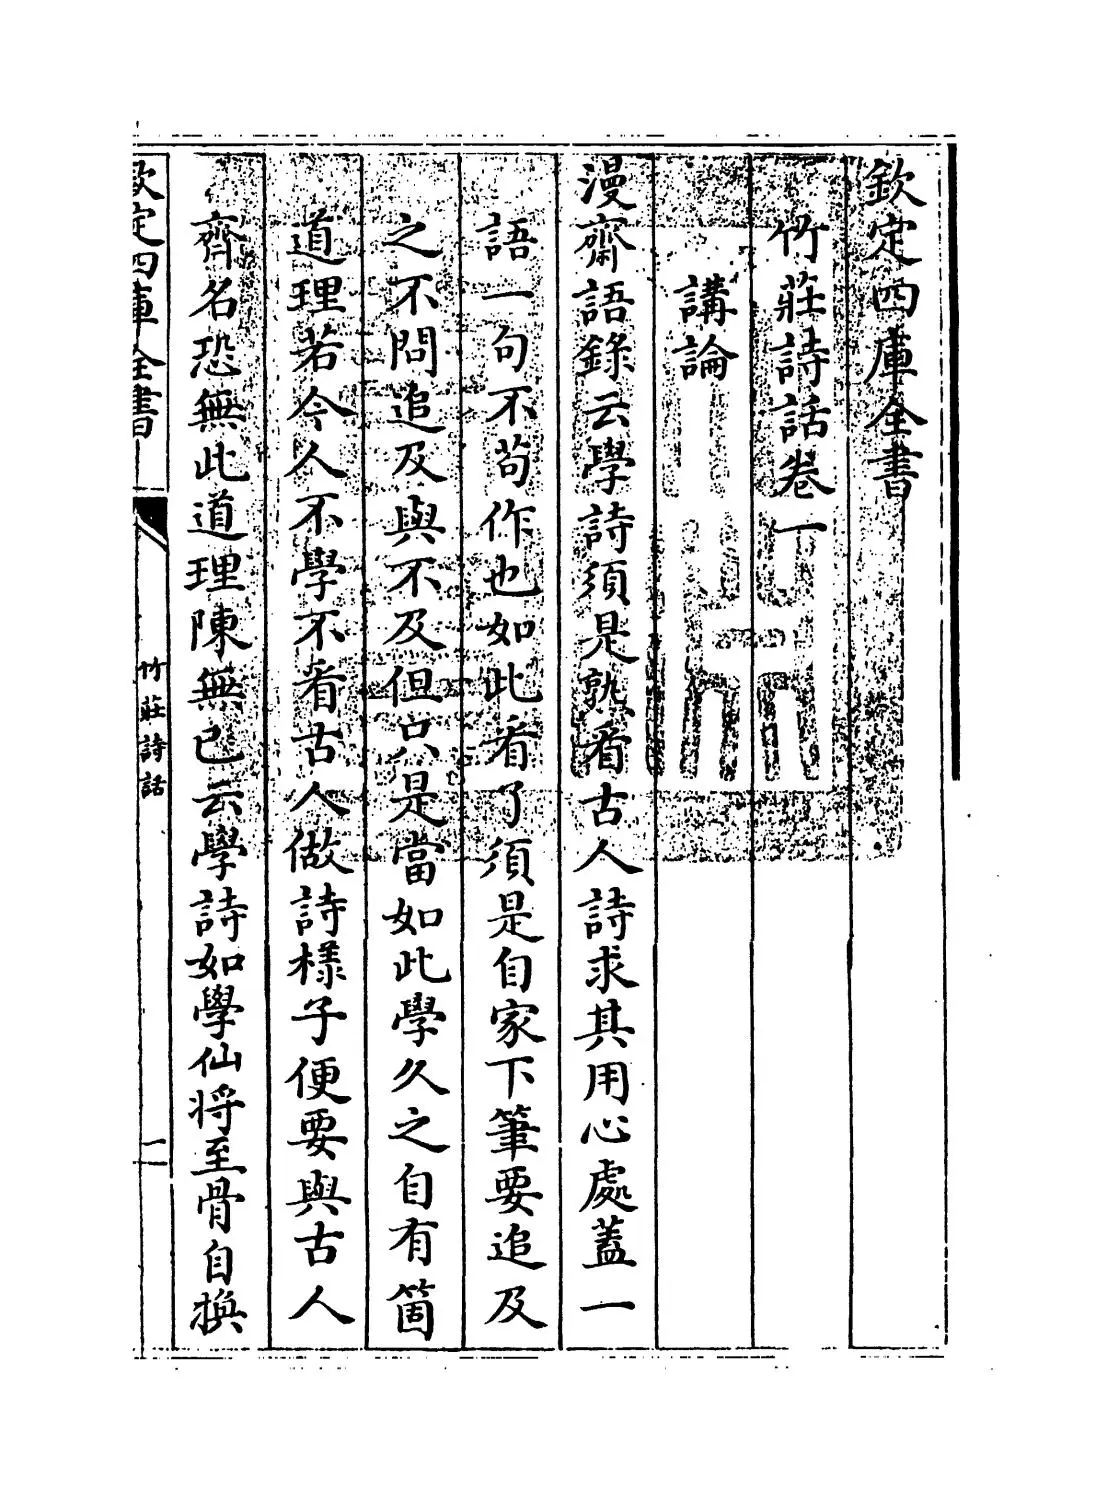 欽定四庫全書
竹莊詩話卷一
講論
漫齋語錄云學詩須是熟看古人詩求其用心處蓋一
語一句不苟作也如此看了須是自家下筆要追及
之不問追及與不及但只是當如此學久之自有箇
道理若今人不學不看古人做詩樣子便要與古人
齊名恐無此道理陳無已云學詩如學仙將至骨自換
欽定四庫全書
竹莊詩話
一